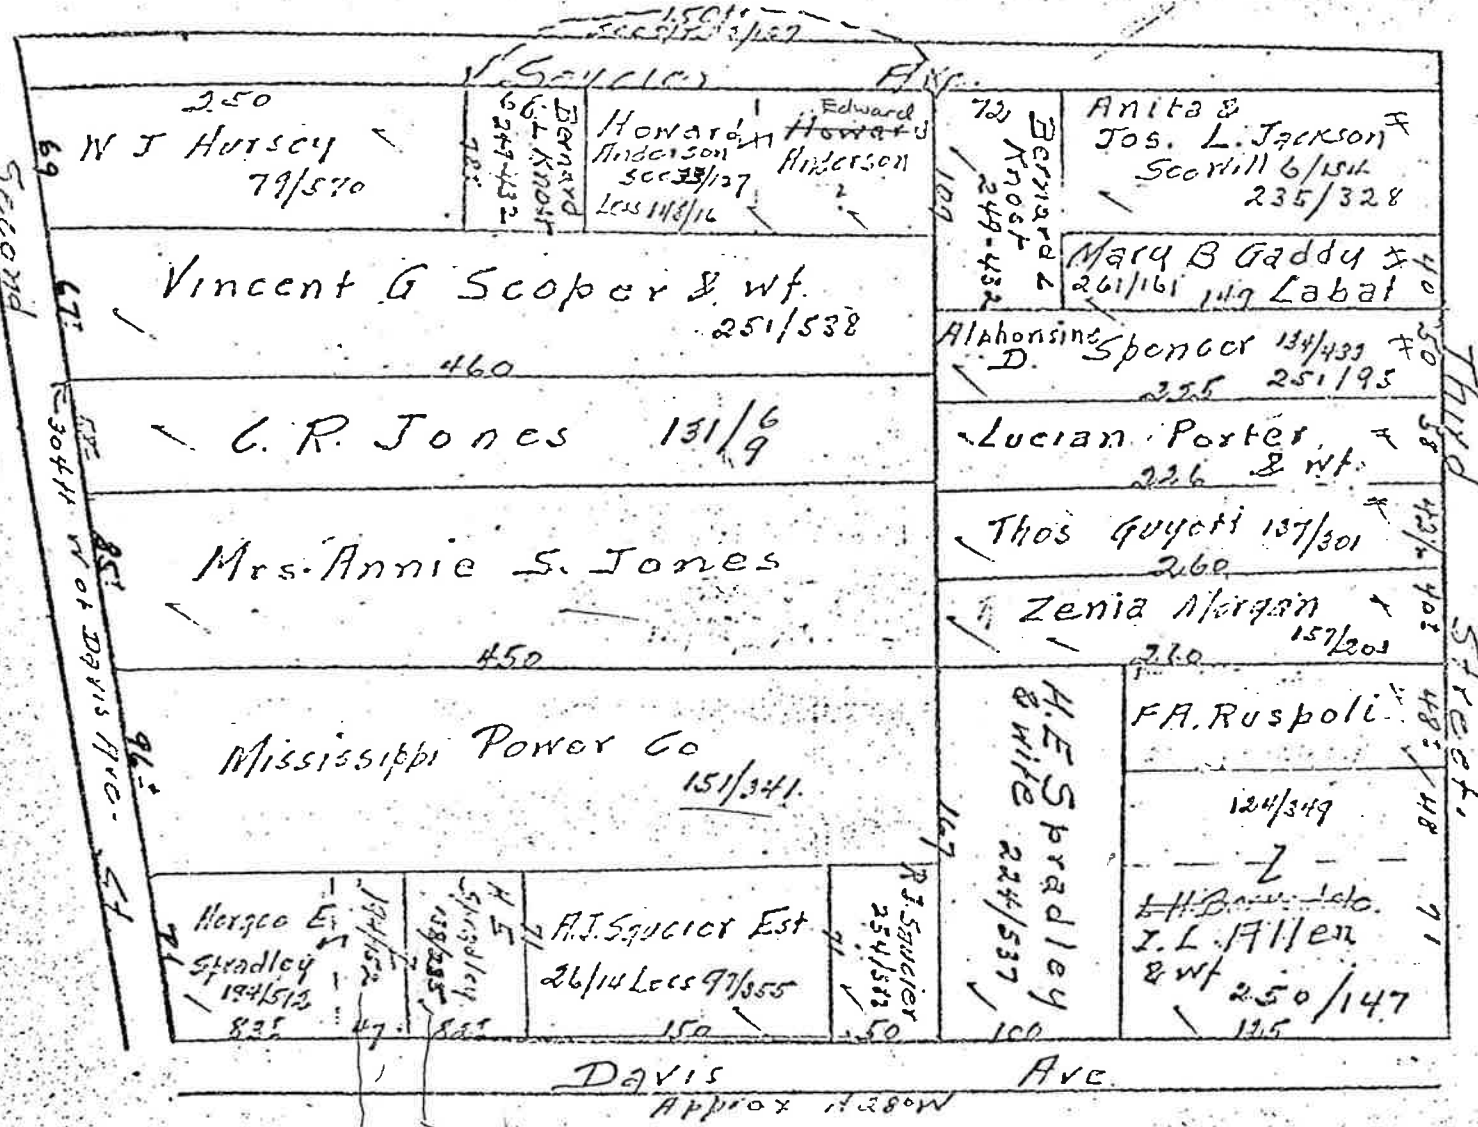 150
Saucier Ave.
250
N J Hursey
79/570
69
Bernard
L Knost
247-432
Howard
Anderson
See 33/127
Less 148/16
Edward
Howard
Anderson
?
72
Bernard L
Knost
249-432
109
Anita &
Jos. L. Jackson
See Will 6/154
235/328
Mary B Gaddy
261/161 Labat
40
Vincent G Scoper & wf.
251/538
67
460
Alphonsine
D. Spencer 134/433
251/95
50
C. R. Jones 131/6
9
Lucian Porter
& wf.
226
38
Mrs. Annie S. Jones
85
450
Thos Guyott 137/301
260
Zenia Morgan
157/203
220
Mississippi Power Co
151/341
96
H.E Spradley
& wife 224/537
167
100
F.A. Ruspoli
48
124/349
48
Z
I. L. Allen
& wf 250/147
71
125
Horace E.
Spradley
194/512
71
47
H E
Spradley
138/235
71
A.J. Saucier Est
26/14 Less 97/355
150
71
R J Saucier
254/583
50
Second
N of Davis Ave.
St
Third
Street.
Davis Ave
Approx N 280W